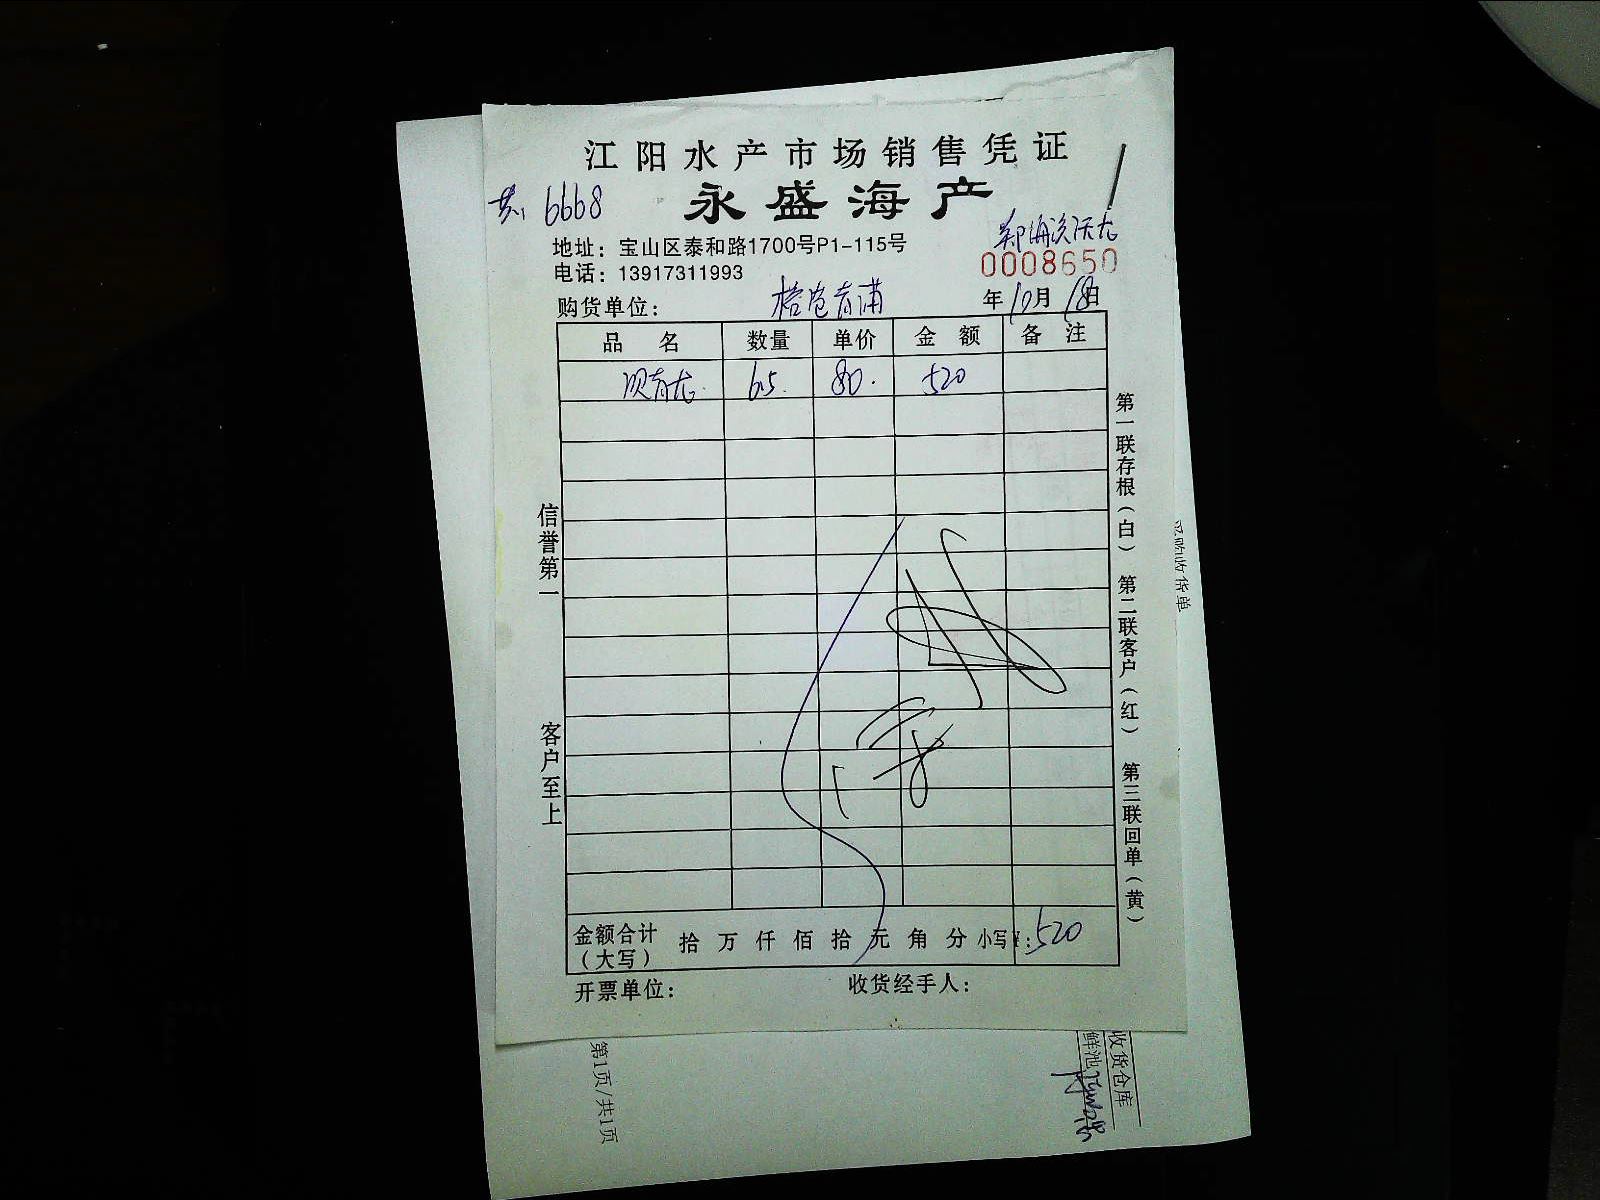 江阳水产市场销售凭证
永盛海产
6668
地址：宝山区泰和路1700号P1-115号
电话：13917311993
0008650
购货单位： 青浦 年10月18日
品名 数量 单价 金额 备注
6.5 80. 520
信誉第一
客户至上
第一联存根（白） 第二联客户（红） 第三联回单（黄）
金额合计（大写） 拾 万 仟 佰 拾 元 角 分 小写¥：520
开票单位： 收货经手人：
收货单
第1页/共1页
收货仓库
鲜池